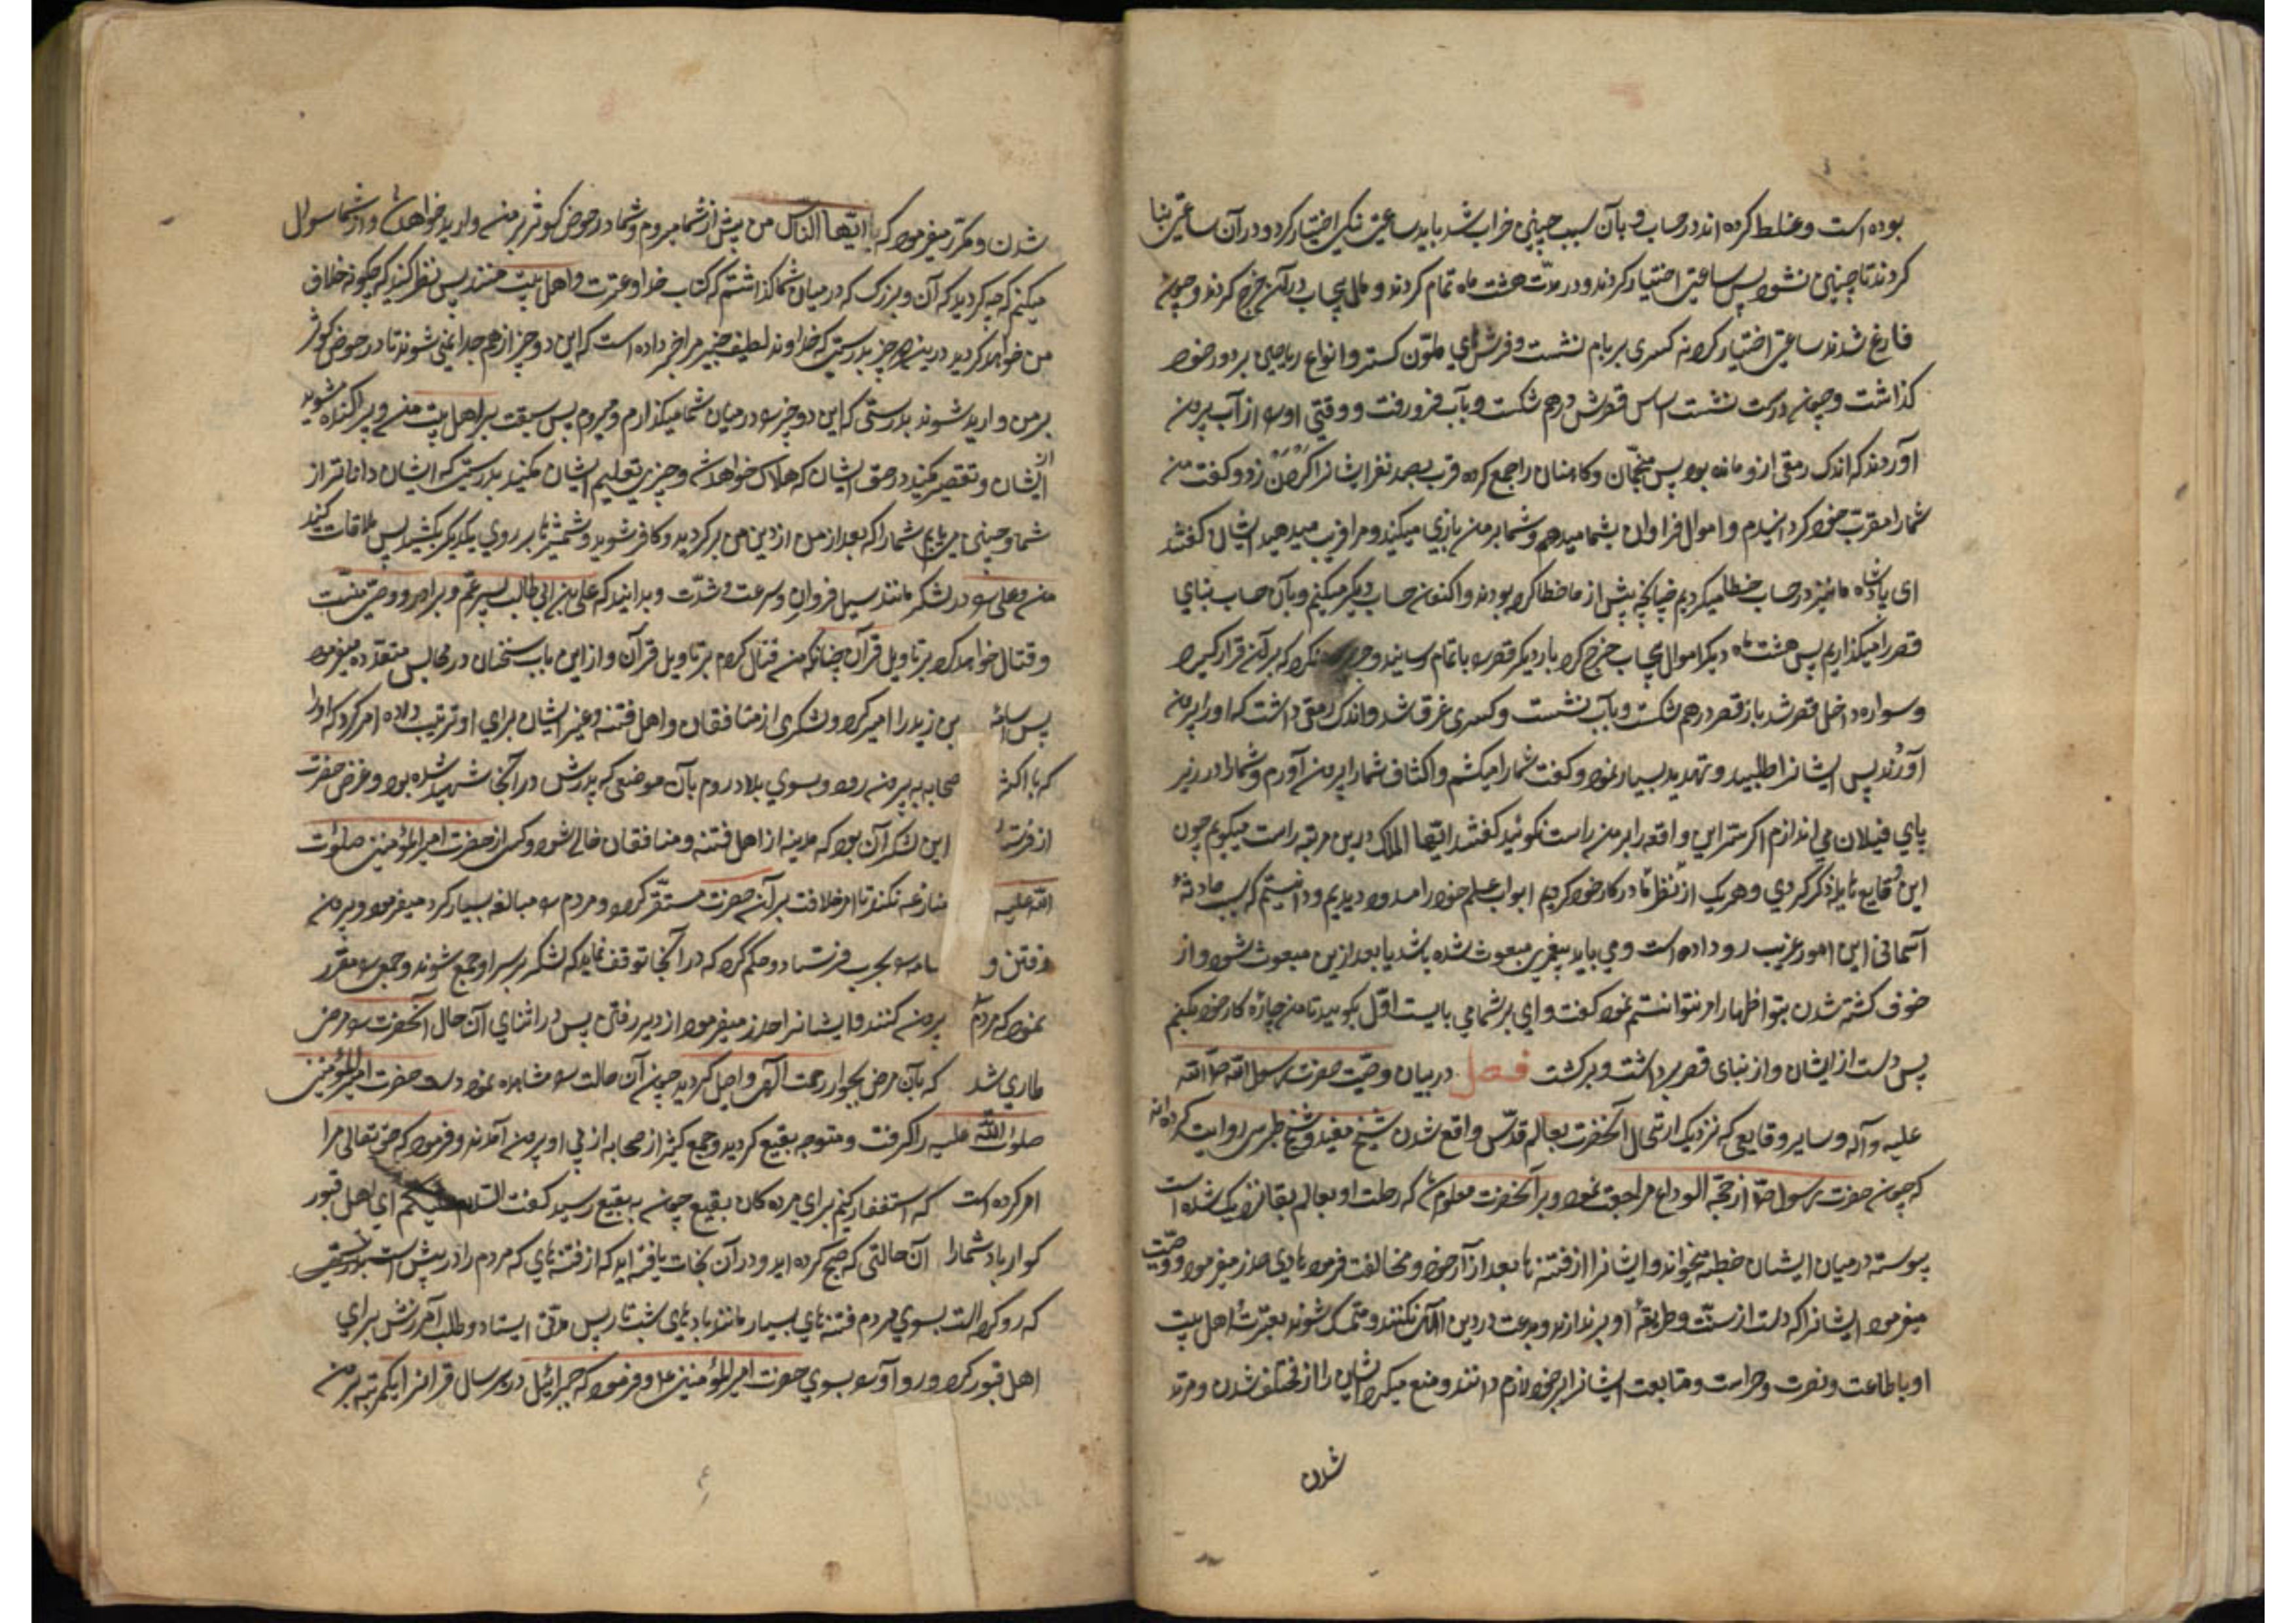 بوده است و غلط کرده اند در حساب و بآن سبب چنین خراب شد باید ساعتی نیک اختیار کرد و در آن ساعت بنا
کردند تا چنین نشود پس ساعتی اختیار کردند و در مدّت هشت ماه تمام کردند و مال بیحساب در آن خرج کردند و چون
فارغ شدند ساعتی اختیار کرده کسری بر بام نشست و فرشهای ملوّن گسترد و انواع ریاحین بر دور خود
گذاشت و چون درست نشست اساس قصرش درهم شکست و بآب فرو رفت و وقتی او را از آب بیرون
آوردند که اندک رمقی ازو مانده بود پس منجّمان و کاهنان را جمع کرده قرب بصد نفر ایشانرا گردن زد و گفت من
شما را مقرب خود گردانیدم و اموال فراوان بشما میدهم و شما بر من بازی میکنید و مرا فریب میدهید ایشان گفتند
ای پادشاه ما نیز در حساب خطا میکردیم چنانچه پیش از ما خطا کرده بودند و اکنون حساب دیگر میکنیم و بآن حساب بنای
قصر را میگذاریم پس هشت ماه دیگر اموال بیحساب خرج کرده بار دیگر قصر را باتمام رسانید و نکرد که بر آن قرار گیرد
و سواره داخل قصر شد باز قصر درهم شکست و بآب نشست و کسری غرق شد و اندک رمقی داشت که او را بیرون
آوردند پس ایشانرا طلبید و تهدید بسیار نمود و گفت شما را میکشم و اکتاف شما را بیرون آورم و شما را در زیر
پای فیلان می اندازم اگر سرّ این واقعه را بر من راست نگوئید گفتند ایّها الملک درین مرتبه راست میکویم چون
این وقایع را ذکر کردی و هر یک از ما نظر در کار خود کردیم ابواب علم خود را مسدود دیدیم و دانستیم که بسبب حادثهٔ
آسمانی این امور غریب رو داده است و می باید پیغمبری مبعوث شده باشد یا بعد ازین مبعوث شود و از
خوف کشته شدن بتو اظهار امر نتوانستیم نمود گفت وای بر شما می بایست اوّل بگویید تا من چارهٔ کار خود میکنم
پس دست از ایشان و از بنای قصر برداشت و برگشت فصل در بیان وصیّت حضرت رسول الله صلّی الله
علیه و آله و سایر وقایعی که نزدیک ارتحال آنحضرت بعالم قدس واقع شدن شیخ مفید و شیخ طبرسی روایت کرده اند
که چون حضرت رسول ص از حجّة الوداع مراجعت نمود و بر آنحضرت معلوم شد که رحلت او بعالم بقا نزدیک شده است
پیوسته در میان ایشان خطبه میخواند و ایشانرا از فتنه ها بعد از آن خود و مخالفت فرمودهای حذر میفرمود و وصیّت
میفرمود ایشانرا که دست از سنّت و طریقهٔ او برندارند و بدعت در دین الهی نکنند و متمسک شوند بعترت و اهل بیت
او باطاعت و نصرت و حراست و متابعت ایشانرا بر خود لازم دانند و منع میکرد ایشان را از مختلف شدن و مرتد
شدن
شدن و مکرّر میفرمود که یا ایّها النّاس من پیش از شما میروم و شما در حوض کوثر بر من وارد خواهید شد و از شما سوال
میکنم که چه کردید که آن دو بزرگ که در میان شما گذاشتم که کتاب خدا و عترت و اهل بیت منند پس نظر کنید که چگونه خلافت
من خواهید کردید درین دو چیز بدرستیکه خداوند لطیف خبیر مرا خبر داده است که این دو چیز از هم جدا نمی شوند تا در حوض کوثر
بر من وارد شوند بدرستی که این دو چیز را در میان شما میگذارم و میروم پس سبقت بر اهل بیت من و پراکنده مشوید
از ایشان و تقصیر مکنید در حق ایشان که هلاک خواهید شد و چیزی تعلیم ایشان مکنید بدرستیکه ایشان داناتر از
شما و چنین می یابم شما را که بعد از من از دین من برگردید و کافر شوید و شمشیرها بر روی یکدیگر بکشید پس ملاقات کنید
من و علی را در لشکر مانند سیل فراوان و سرعت و شدّت و بدانید که علی بن ابی طالب پسر عمّ و برادر و وصیّ منست
و قتال خواهد کرد بر تاویل قرآن چنانکه من قتال کردم بر تاویل قرآن و از این باب سخنان در مجالس متعدّده میفرمود
پس اسامة بن زید را امیر کرد و لشکری از منافقان و اهل فتنه و غیر ایشان برای او ترتیب داده امر کرد که او را
که با اکثر صحابه بیرون رود و بسوی بلاد روم بآن موضعی که پدرش در آنجا شهید شده بود و غرض حضرت
از فرستادن این لشکر آن بود که مدینه از اهل فتنه و منافقان خالی شود و کسی از حضرت امیر المؤمنین صلوات
الله علیه منازعه نکند تا امر خلافت بر آن حضرت مستقّر گردد و مردم را مبالغه بسیار کرد میفرمود و بیرون
رفتن و اسامه را بحرب فرستاد و حکم کرد که در آنجا توقف نماید که لشکر بر سر او جمع شوند و جمعی را مقرّر
نمود که مردم بیرون کنند و ایشانرا حذر میفرمود از دیر رفتن پس در اثنای آن حال آنحضرت را مرض
طاری شد که بآن مرض بجوار رحمت الهی واصل گردید چون آن حالت را مشاهده نمود دست حضرت امیر المؤمنین
صلوات الله علیه را گرفت و متوجه بقیع گردید و جمع کثیر از صحابه از پی او بیرون آمدند و فرمود که حق تعالی مرا
امر کرده است که استغفار کنم برای مرده کان بقیع چون به بقیع رسید گفت السّلام علیکم ای اهل قبور
گوارا باد شما را آن حالتی که صبح کرده اید و در آن نجات یافته اید که از فتنه های که مردم را در پیش است بدرستی
که رو کرده است بسوی مردم فتنه های بسیار مانند پارهای شب تار پس مدّتی ایستاد و طلب آمرزش برای
اهل قبور کرد و رو آورد بسوی حضرت امیر المؤمنین ع و فرمود که جبرائیل در هر سال قرآنرا یکمرتبه بر من